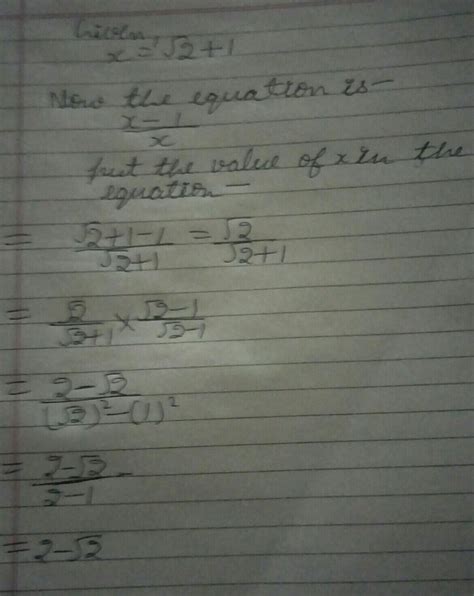 Given,
x = √2+1
Now the equation is-
x-1/x
put the value of x in the
equation -
= √2+1-1/√2+1 = √2/√2+1
= √2/√2+1 × √2-1/√2-1
= 2-√2/(√2)²-(1)²
= 2-√2/2-1
= 2-√2